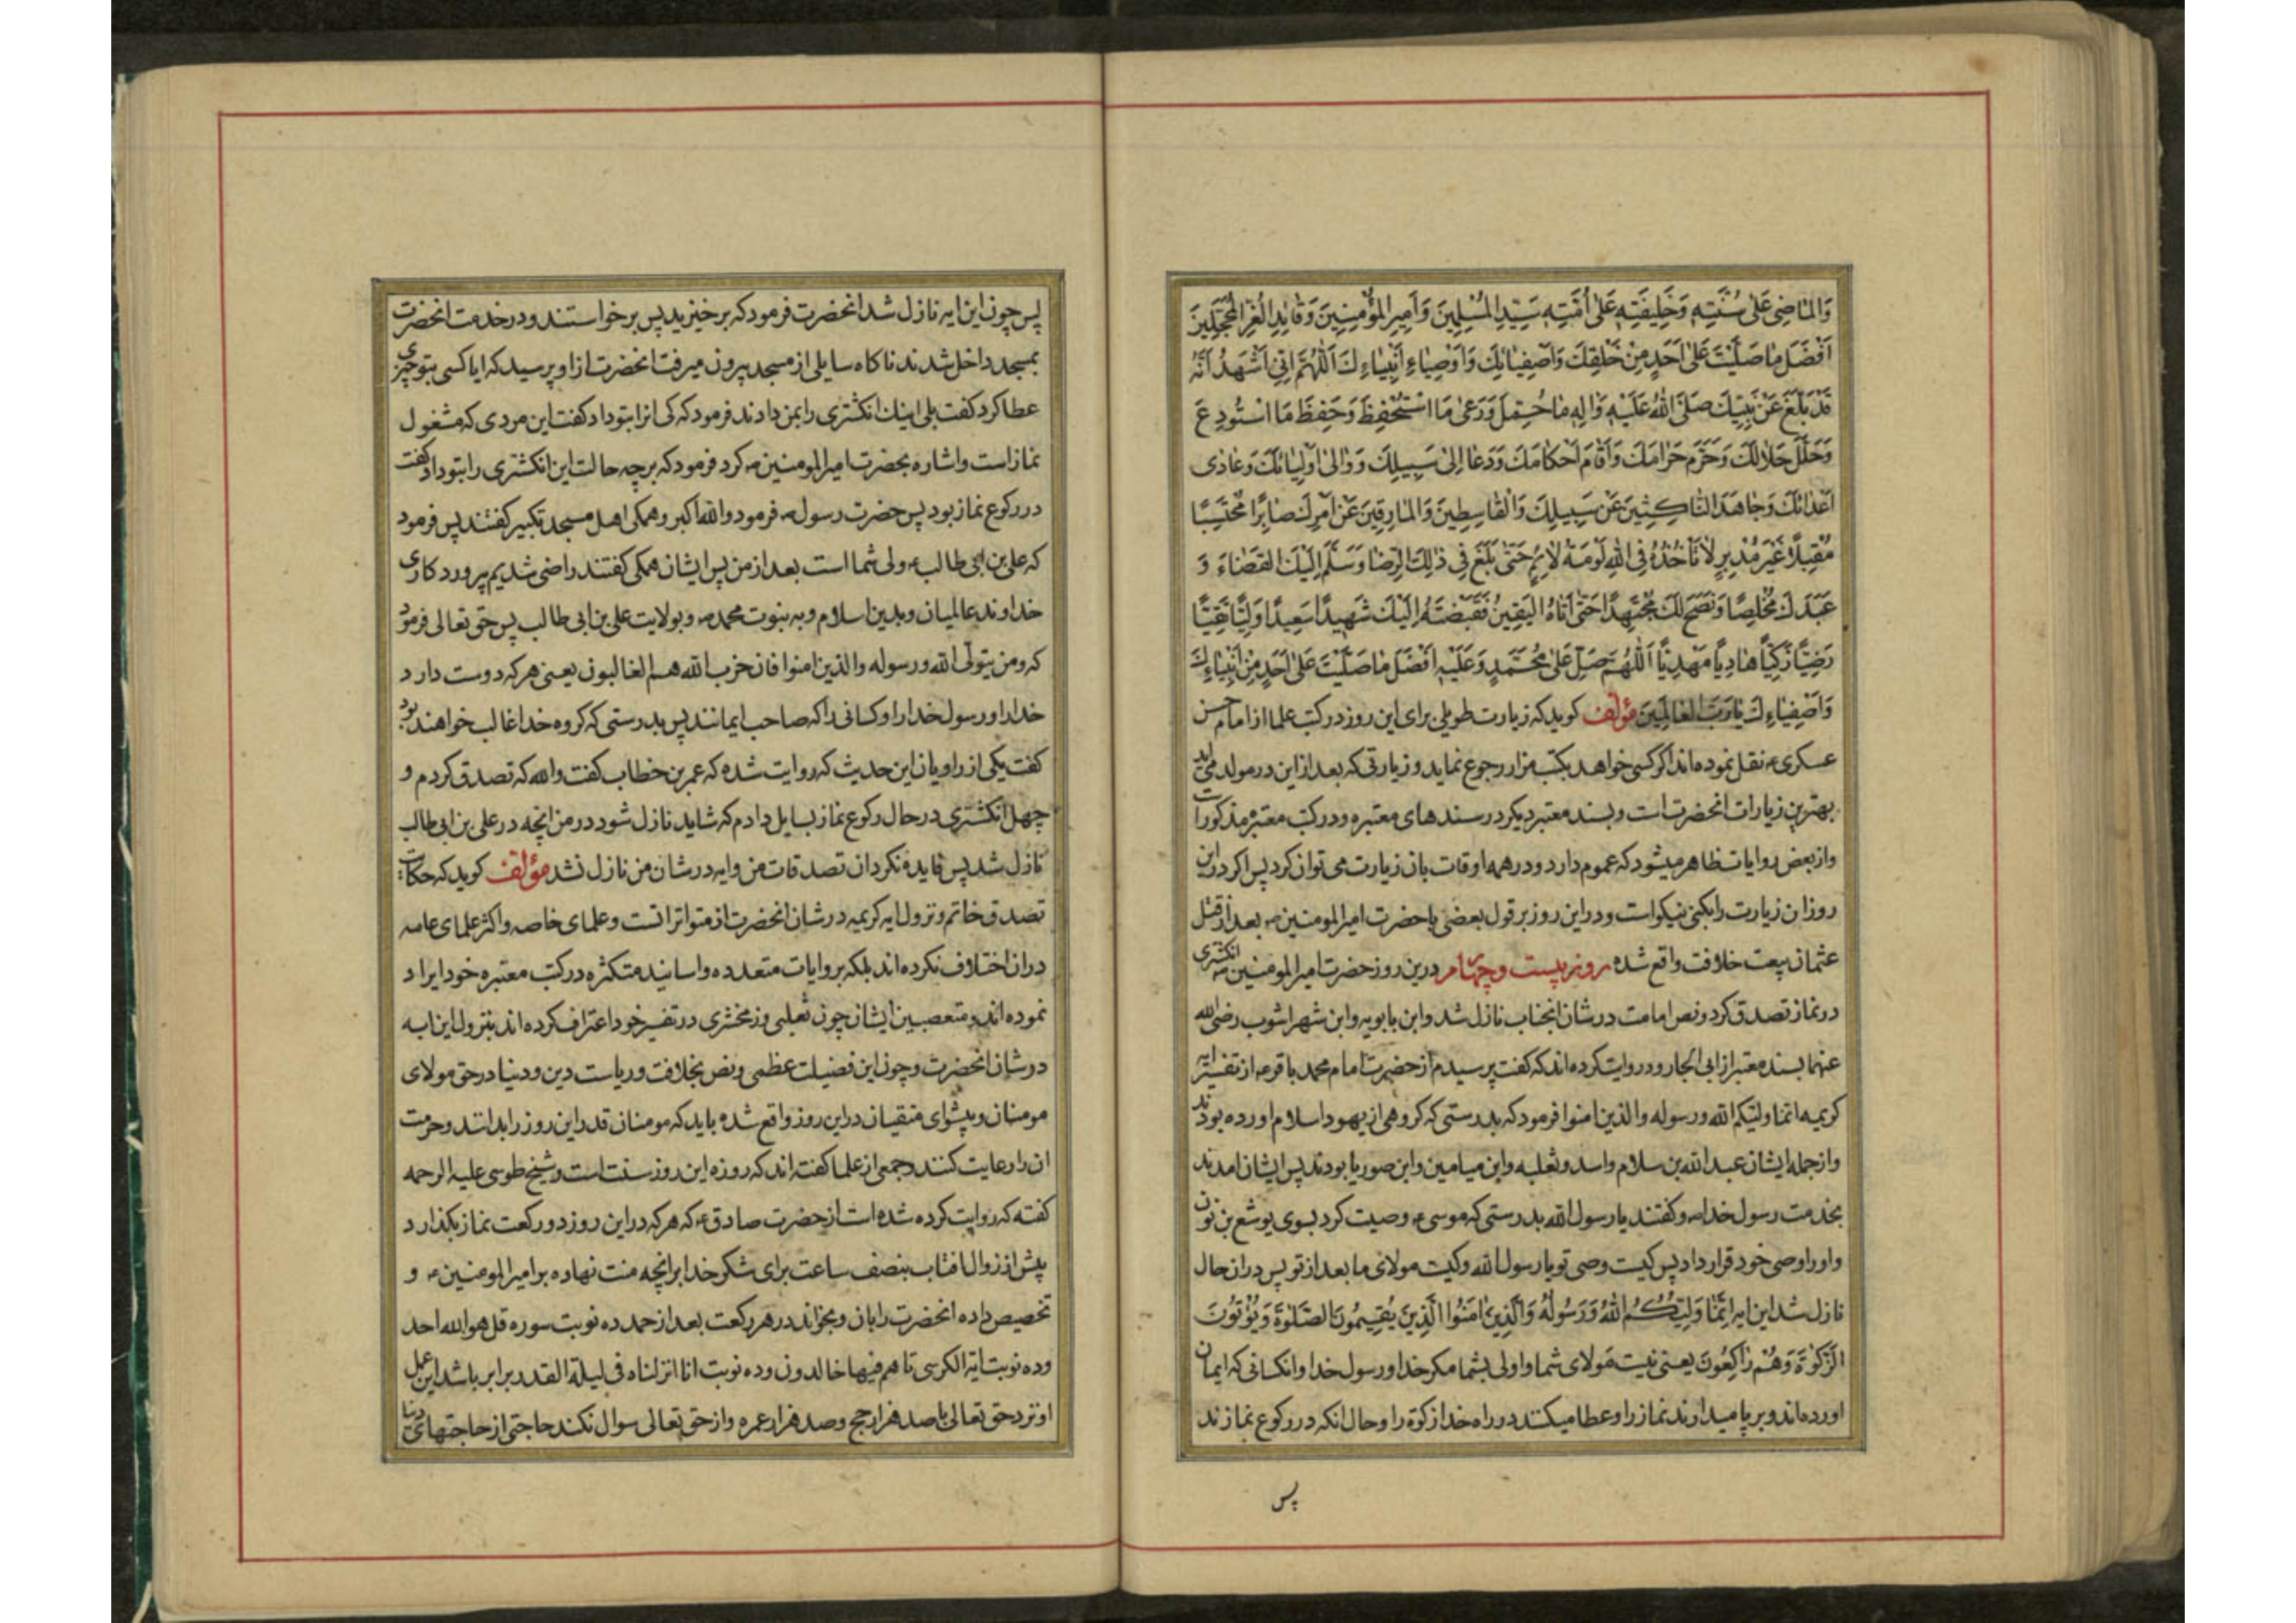 وَالْمَاضِی عَلٰی سُنَّتِهِ وَخَلِیفَتِهِ عَلٰی اُمَّتِهِ سَیِّدِ الْمُسْلِمِینَ وَاَمِیرِ الْمُؤْمِنِینَ وَقَائِدِ الْغُرِّ الْمُحَجَّلِینَ
اَفْضَلَ مَا صَلَّیْتَ عَلٰی اَحَدٍ مِنْ خَلْقِكَ وَاَصْفِیَائِكَ وَاَوْصِیَاءِ اَنْبِیَاءِكَ اَللّٰهُمَّ اِنِّی اَشْهَدُ اَنَّهُ
قَدْ بَلَّغَ عَنْ نَبِیِّكَ صَلَّی اللّٰهُ عَلَیْهِ وَاٰلِهِ مَا حُمِّلَ وَرَعٰی مَا اسْتُحْفِظَ وَحَفِظَ مَا اسْتُودِعَ
وَحَلَّلَ حَلَالَكَ وَحَرَّمَ حَرَامَكَ وَاَقَامَ اَحْکَامَكَ وَدَعَا اِلٰی سَبِیلِكَ وَوَالٰی اَوْلِیَائَكَ وَعَادٰی
اَعْدَائَكَ وَجَاهَدَ النَّاکِثِینَ عَنْ سَبِیلِكَ وَالْقَاسِطِینَ وَالْمَارِقِینَ عَنْ اَمْرِكَ صَابِرًا مُحْتَسِبًا
مُقْبِلًا غَیْرَ مُدْبِرٍ لَا تَاْخُذُهُ فِی اللّٰهِ لَوْمَةُ لَائِمٍ حَتّٰی بَلَغَ فِی ذٰلِكَ الرِّضَا وَسَلَّمَ اِلَیْكَ الْقَضَاءَ وَ
عَبَدَكَ مُخْلِصًا وَنَصَحَ لَكَ مُجْتَهِدًا حَتّٰی اَتَاهُ الْیَقِینُ فَقَبَضْتَهُ اِلَیْكَ شَهِیدًا سَعِیدًا وَلِیًّا تَقِیًّا
رَضِیًّا زَکِیًّا هَادِیًا مَهْدِیًّا اَللّٰهُمَّ صَلِّ عَلٰی مُحَمَّدٍ وَعَلَیْهِ اَفْضَلَ مَا صَلَّیْتَ عَلٰی اَحَدٍ مِنْ اَنْبِیَاءِكَ
وَاَصْفِیَاءِكَ یَا رَبَّ الْعَالَمِینَ مؤلف کوید که زیارت طویلی برای این روز در کتب علما از امام حسن
عسکری ع نقل نموده اند اکر کسی خواهد بکتب مزار رجوع نماید و زیارتی که بعد از این در مولد می اید
بهترین زیارات انحضرت است و بسند معتبر دیکر در سندهای معتبره و در کتب معتبره مذکور است
و از بعض روایات ظاهر میشود که عموم دارد و در همه اوقات بان زیارت می توان کرد پس اکر در این
روز ان زیارت را بکنی نیکو است و در این روز بر قول بعضی با حضرت امیر المومنین ع بعد از قتل
عثمان بیعت خلافت واقع شده روز بیست و چهارم درین روز حضرت امیر المومنین ع انکشتری
در نماز تصدق کرد و نص امامت در شان انجناب نازل شد و ابن بابویه و ابن شهراشوب رضی الله
عنهما بسند معتبر از ابی الجارود روایت کرده اند که کفت پرسیدم از حضرت امام محمد باقر ع از تفسیر ایه
کریمه انما ولیکم الله ورسوله والذین امنوا فرمود که بدرستی که کروهی از یهود اسلام اورده بودند
و از جمله ایشان عبد الله بن سلام و اسد و ثعلبه و ابن میامین و ابن صوریا بودند پس ایشان امدند
بخدمت رسول خدا ص و کفتند یا رسول الله بدرستی که موسی ع وصیت کرد بسوی یوشع بن نون
و او را وصی خود قرار داد پس کیست وصی تو یا رسول الله و کیست مولای ما بعد از تو پس در ان حال
نازل شد این ایه اِنَّمَا وَلِیُّکُمُ اللّٰهُ وَرَسُولُهُ وَالَّذِینَ اٰمَنُوا الَّذِینَ یُقِیمُونَ الصَّلٰوةَ وَیُؤْتُونَ
الزَّکٰوةَ وَهُمْ رَاکِعُونَ یعنی نیست مولای شما و اولی بشما مکر خدا و رسول خدا و انکسانی که ایمان
اورده اند و بر پا میدارند نماز را و عطا میکنند در راه خدا زکوة را و حال انکه در رکوع نمازند
پس
پس چون این ایه نازل شد انحضرت فرمود که برخیزید پس برخواستند و در خدمت انحضرت
بمسجد داخل شدند ناکاه سایلی از مسجد بیرون میرفت انحضرت از او پرسید که ایا کسی بتو چیزی
عطا کرد کفت بلی اینك انکشتری را بمن دادند فرمود که کی انرا بتو داد کفت این مردی که مشغول
نماز است و اشاره بحضرت امیر المومنین ع کرد فرمود که بر چه حالت این انکشتری را بتو داد کفت
در رکوع نماز بود پس حضرت رسول ص فرمود والله اکبر و همکی اهل مسجد تکبیر کفتند پس فرمود
که علی بن ابی طالب ع ولی شما است بعد از من پس ایشان همکی کفتند راضی شدیم بپروردکاری
خداوند عالمیان و بدین اسلام و به نبوت محمد ص و بولایت علی بن ابی طالب پس حق تعالی فرمود
که ومن یتولی الله ورسوله والذین امنوا فان حزب الله هم الغالبون یعنی هر که دوست دارد
خدا را و رسول خدا را و کسانی را که صاحب ایمانند پس بدرستی که کروه خدا غالب خواهند بود
کفت یکی از راویان این حدیث که روایت شده که عمر بن خطاب کفت والله که تصدق کردم و
چهل انکشتری در حال رکوع نماز بسایل دادم که شاید نازل شود در من انچه در علی بن ابی طالب
نازل شد پس فایده نکرد ان تصدقات من و ایه در شان من نازل نشد مؤلف کوید که حکایت
تصدق خاتم و نزول ایه کریمه در شان انحضرت از متواترانست و علمای خاصه و اکثر علمای عامه
در ان اختلاف نکرده اند بلکه بروایات متعدده و اسانید متکثره در کتب معتبره خود ایراد
نموده اند و متعصبین ایشان چون ثعلبی و زمخشری در تفسیر خود اعتراف کرده اند بنزول این ایه
در شان انحضرت و چون این فضیلت عظمی و نص بخلافت و ریاست دین و دنیا در حق مولای
مومنان و پیشوای متقیان در این روز واقع شده باید که مومنان قدر این روز را بدانند و حرمت
ان را رعایت کنند و جمعی از علما کفته اند که روزه این روز سنت است و شیخ طوسی علیه الرحمه
کفته که روایت کرده شده است از حضرت صادق ع که هر که در این روز دو رکعت نماز بکذارد
پیش از زوال افتاب بنصف ساعت برای شکر خدا بر انچه منت نهاده بر امیر المومنین ع و
تخصیص داده انحضرت را بان و بخواند در هر رکعت بعد از حمد ده نوبت سوره قل هو الله احد
و ده نوبت ایة الکرسی تا هم فیها خالدون و ده نوبت انا انزلناه فی لیلة القدر برابر باشد این عمل
او نزد حق تعالی با صد هزار حج و صد هزار عمره و از حق تعالی سوال نکند حاجتی از حاجتهای دنیا